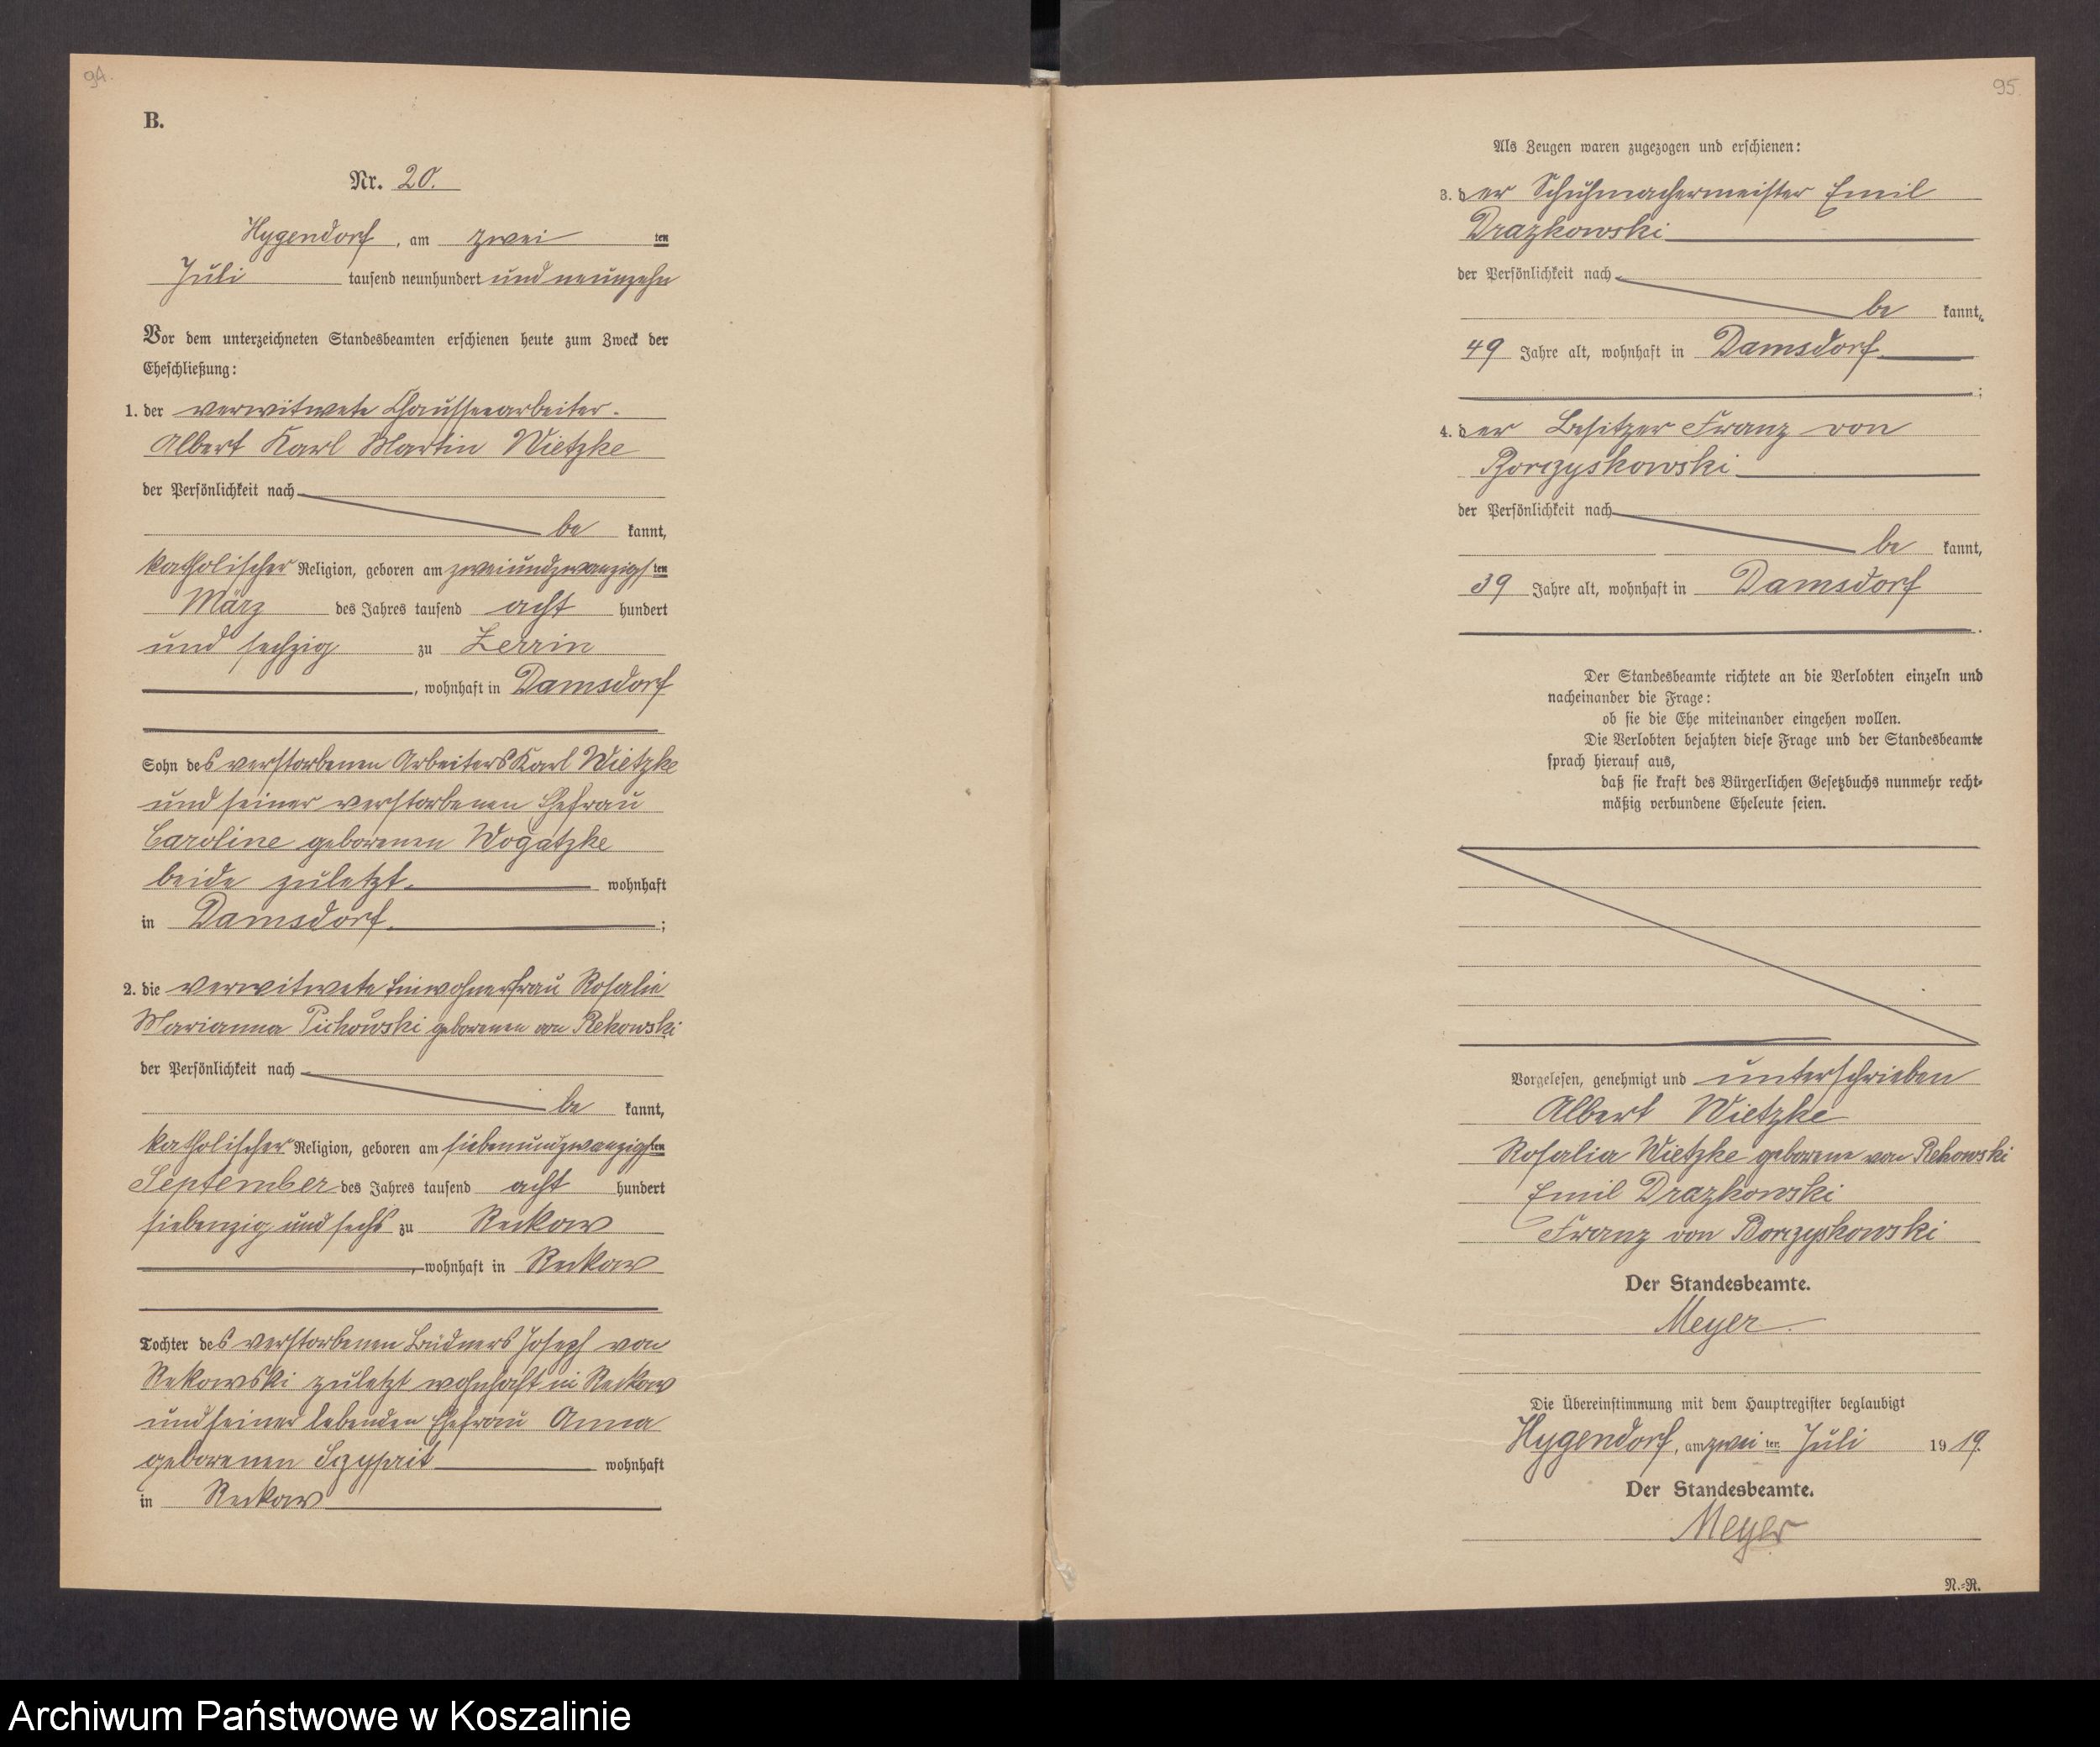 94.
B.
Nr. 20.
Hygendorf, am zwei ten
Juli tausend neunhundert und neunzehn
Vor dem unterzeichneten Standesbeamten erschienen heute zum Zweck der
Eheschließung:
1. der verwitwete Chausseearbeiter.
Albert Karl Martin Wietzke
der Persönlichkeit nach
be kannt,
katholischer Religion, geboren am zweiundzwanzigsten
März des Jahres tausend acht hundert
und sechzig zu Zerrin
, wohnhaft in Damsdorf
Sohn des verstorbenen Arbeiters Karl Wietzke
und seiner verstorbenen Ehefrau
Caroline geborenen Wogatzke
beide zuletzt wohnhaft
in Damsdorf. ;
2. die verwitwete Einwohnerfrau Rosalie
Marianna geborenen von Rekowski
der Persönlichkeit nach
be kannt,
katholischer Religion, geboren am siebenundzwanzigsten
September des Jahres tausend acht hundert
siebenzig und sechs zu Reckow
, wohnhaft in Reckow
Tochter des verstorbenen Büdners Joseph von
Rekowski zuletzt wohnhaft in Reckow
und seiner lebenden Ehefrau Anna
geborenen wohnhaft
in Reckow
95.
Als Zeugen waren zugezogen und erschienen:
3. der Schuhmachermeister Emil
Drazkowski
der Persönlichkeit nach
be kannt,
49 Jahre alt, wohnhaft in Damsdorf
;
4. der Besitzer Franz von
Borzyskowski
der Persönlichkeit nach
be kannt,
39 Jahre alt, wohnhaft in Damsdorf
.
Der Standesbeamte richtete an die Verlobten einzeln und
nacheinander die Frage:
ob sie die Ehe miteinander eingehen wollen.
Die Verlobten bejahten diese Frage und der Standesbeamte
sprach hierauf aus,
daß sie kraft des Bürgerlichen Gesetzbuchs nunmehr recht-
mäßig verbundene Eheleute seien.
Vorgelesen, genehmigt und unterschrieben
Albert Wietzke
Rosalia Wietzke geborene von Rekowski
Emil Drazkowski
Franz von Borzyskowski
Der Standesbeamte.
Meyer.
Die Übereinstimmung mit dem Hauptregister beglaubigt
Hygendorf, am zwei ten Juli 19 19.
Der Standesbeamte.
Meyer
N.-R.
Archiwum Państwowe w Koszalinie